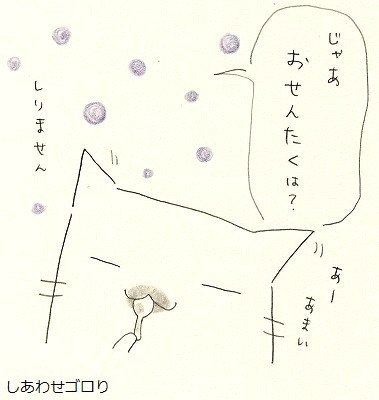 じゃあ
おせんたくは？
しりません
あー
あまい
しあわせゴロり